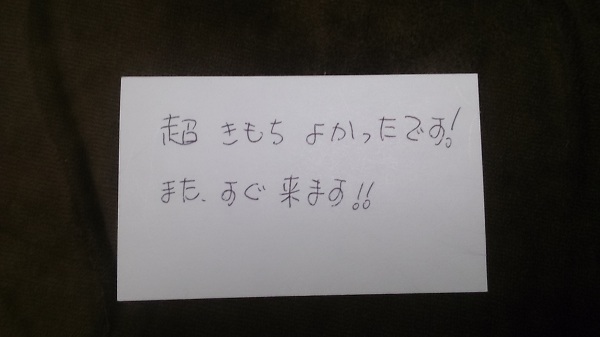 超 きもち よかったです!
また、すぐ 来ます!!